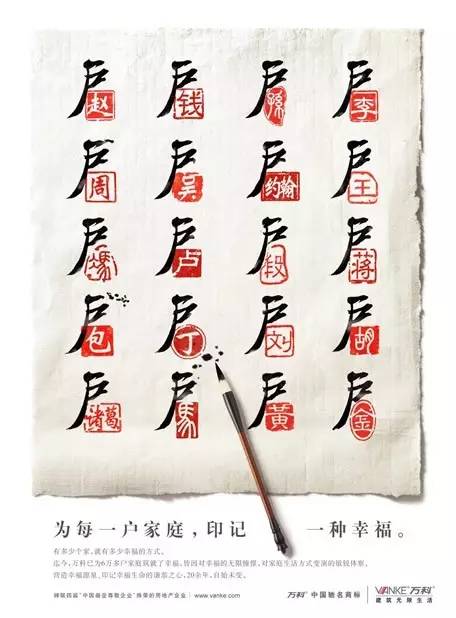 户赵 户钱 户孫 户李
户周 户吴 户约翰 户王
户馮 户卢 户段 户蒋
户包 户丁 户刘 户胡
户诸葛 户馬 户黃 户金
为每一户家庭，印记 一种幸福。
有多少个家，就有多少幸福的方式。
迄今，万科已为6万多户家庭筑就了幸福。皆因对幸福的无限憧憬，对家庭生活方式变演的敏锐体察。
营造幸福源泉、印记幸福生命的谦恭之心，20余年，自始未变。
蝉联四届“中国最受尊敬企业”殊荣的房地产企业 | www.vanke.com 万科 中国驰名商标 VANKE 万科
建筑无限生活